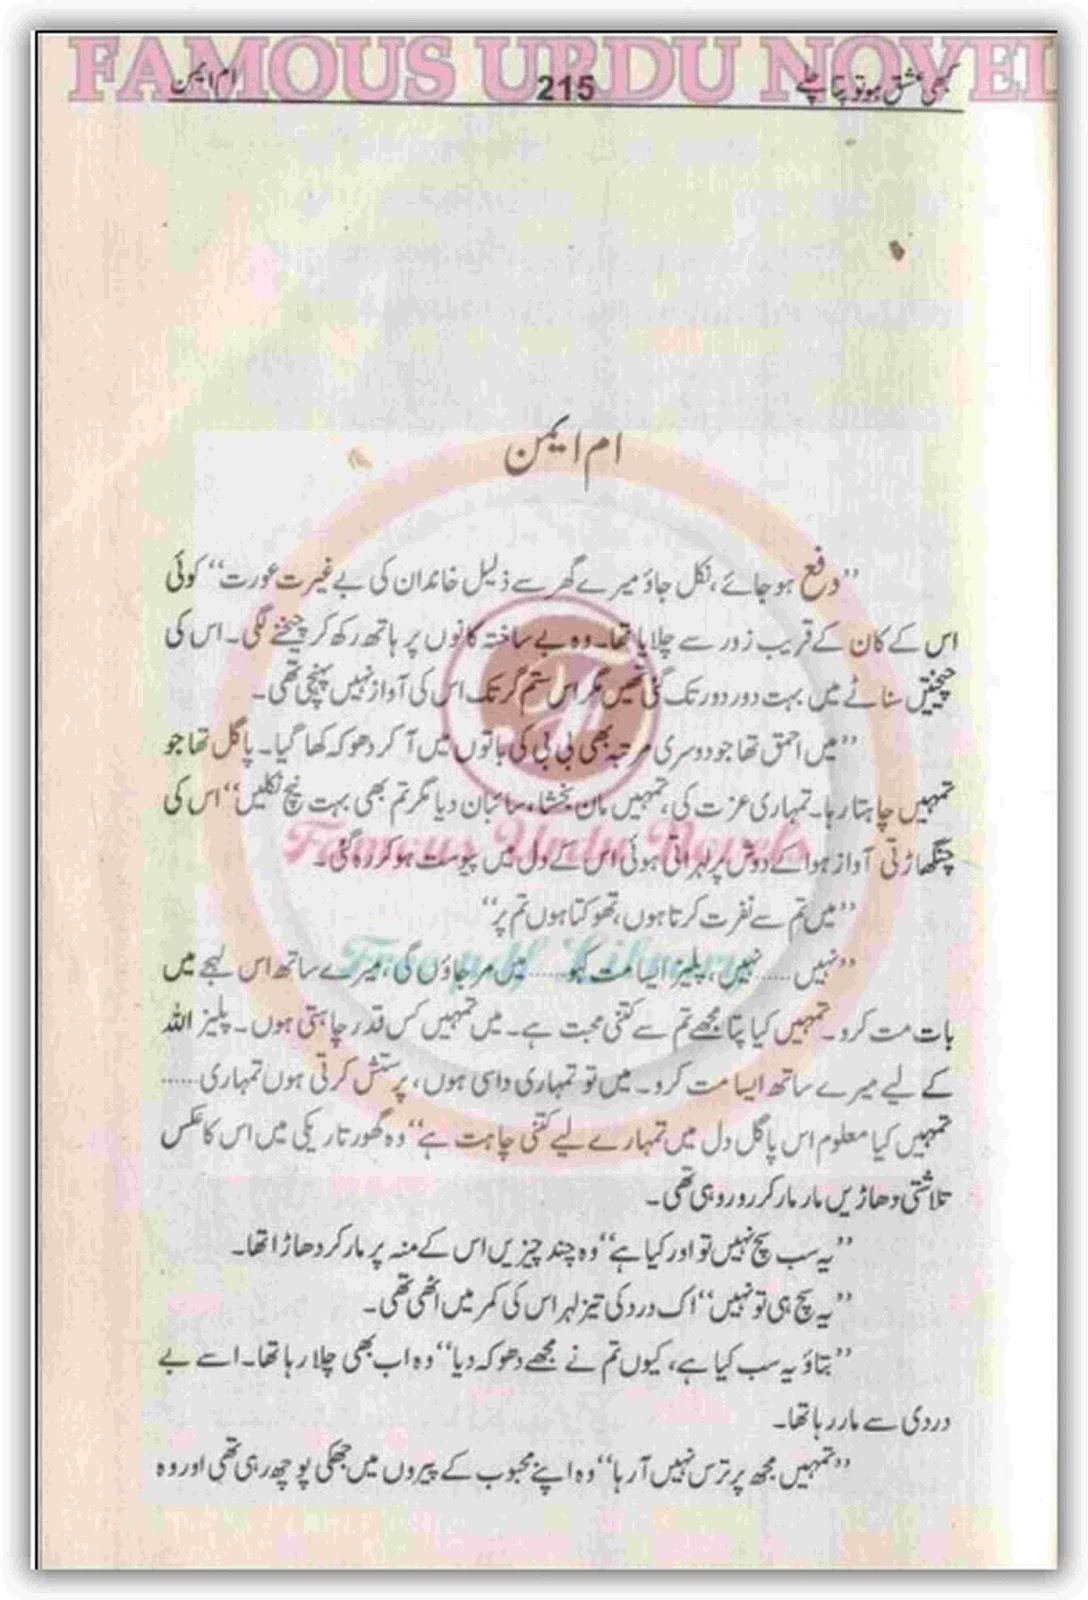 FAMOUS URDU NOVEL
کبھی عشق ہو تو پتا چلے 215 ام ایمن
ام ایمن
’’دفع ہو جائے، نکل جاؤ میرے گھر سے ذلیل خاندان کی بے غیرت عورت‘‘ کوئی
اس کے کان کے قریب زور سے چلایا تھا۔ وہ بے ساختہ کانوں پر ہاتھ رکھ کر چیخنے لگی۔ اس کی
چیخیں سناٹے میں بہت دور دور تک گئی تھیں مگر اس ستم گر تک اس کی آواز نہیں پہنچی تھی۔
’’میں احمق تھا جو دوسری مرتبہ بھی بی بی کی باتوں میں آ کر دھوکہ کھا گیا۔ پاگل تھا جو
تمہیں چاہتا رہا۔ تمہاری عزت کی، تمہیں مان بخشا، سائبان دیا مگر تم بھی بہت نیچ نکلیں‘‘ اس کی
چنگھاڑتی آواز ہوا کے دوش پر لہراتی ہوئی اس کے دل میں پیوست ہو کر رہ گئی۔
Famous Urdu Novels
’’میں تم سے نفرت کرتا ہوں، تھوکتا ہوں تم پر‘‘
Free pdf Library
’’نہیں...... نہیں، پلیز ایسا مت کہو...... میں مر جاؤں گی، میرے ساتھ اس لہجے میں
بات مت کرو۔ تمہیں کیا پتا مجھے تم سے کتنی محبت ہے۔ میں تمہیں کس قدر چاہتی ہوں۔ پلیز اللہ
کے لیے میرے ساتھ ایسا مت کرو۔ میں تو تمہاری داسی ہوں، پرستش کرتی ہوں تمہاری......
تمہیں کیا معلوم اس پاگل دل میں تمہارے لیے کتنی چاہت ہے‘‘ وہ گھور تاریکی میں اس کا عکس
تلاشتی دھاڑیں مار مار کر رو رہی تھی۔
’’یہ سب سچ نہیں تو اور کیا ہے‘‘ وہ چند چیزیں اس کے منہ پر مار کر دھاڑا تھا۔
’’یہ سچ ہی تو نہیں‘‘ اک درد کی تیز لہر اس کی کمر میں اٹھی تھی۔
’’بتاؤ یہ سب کیا ہے، کیوں تم نے مجھے دھوکہ دیا‘‘ وہ اب بھی چلا رہا تھا۔ اسے بے
دردی سے مار رہا تھا۔
’’تمہیں مجھ پر ترس نہیں آ رہا‘‘ وہ اپنے محبوب کے پیروں میں جھکی پوچھ رہی تھی اور وہ